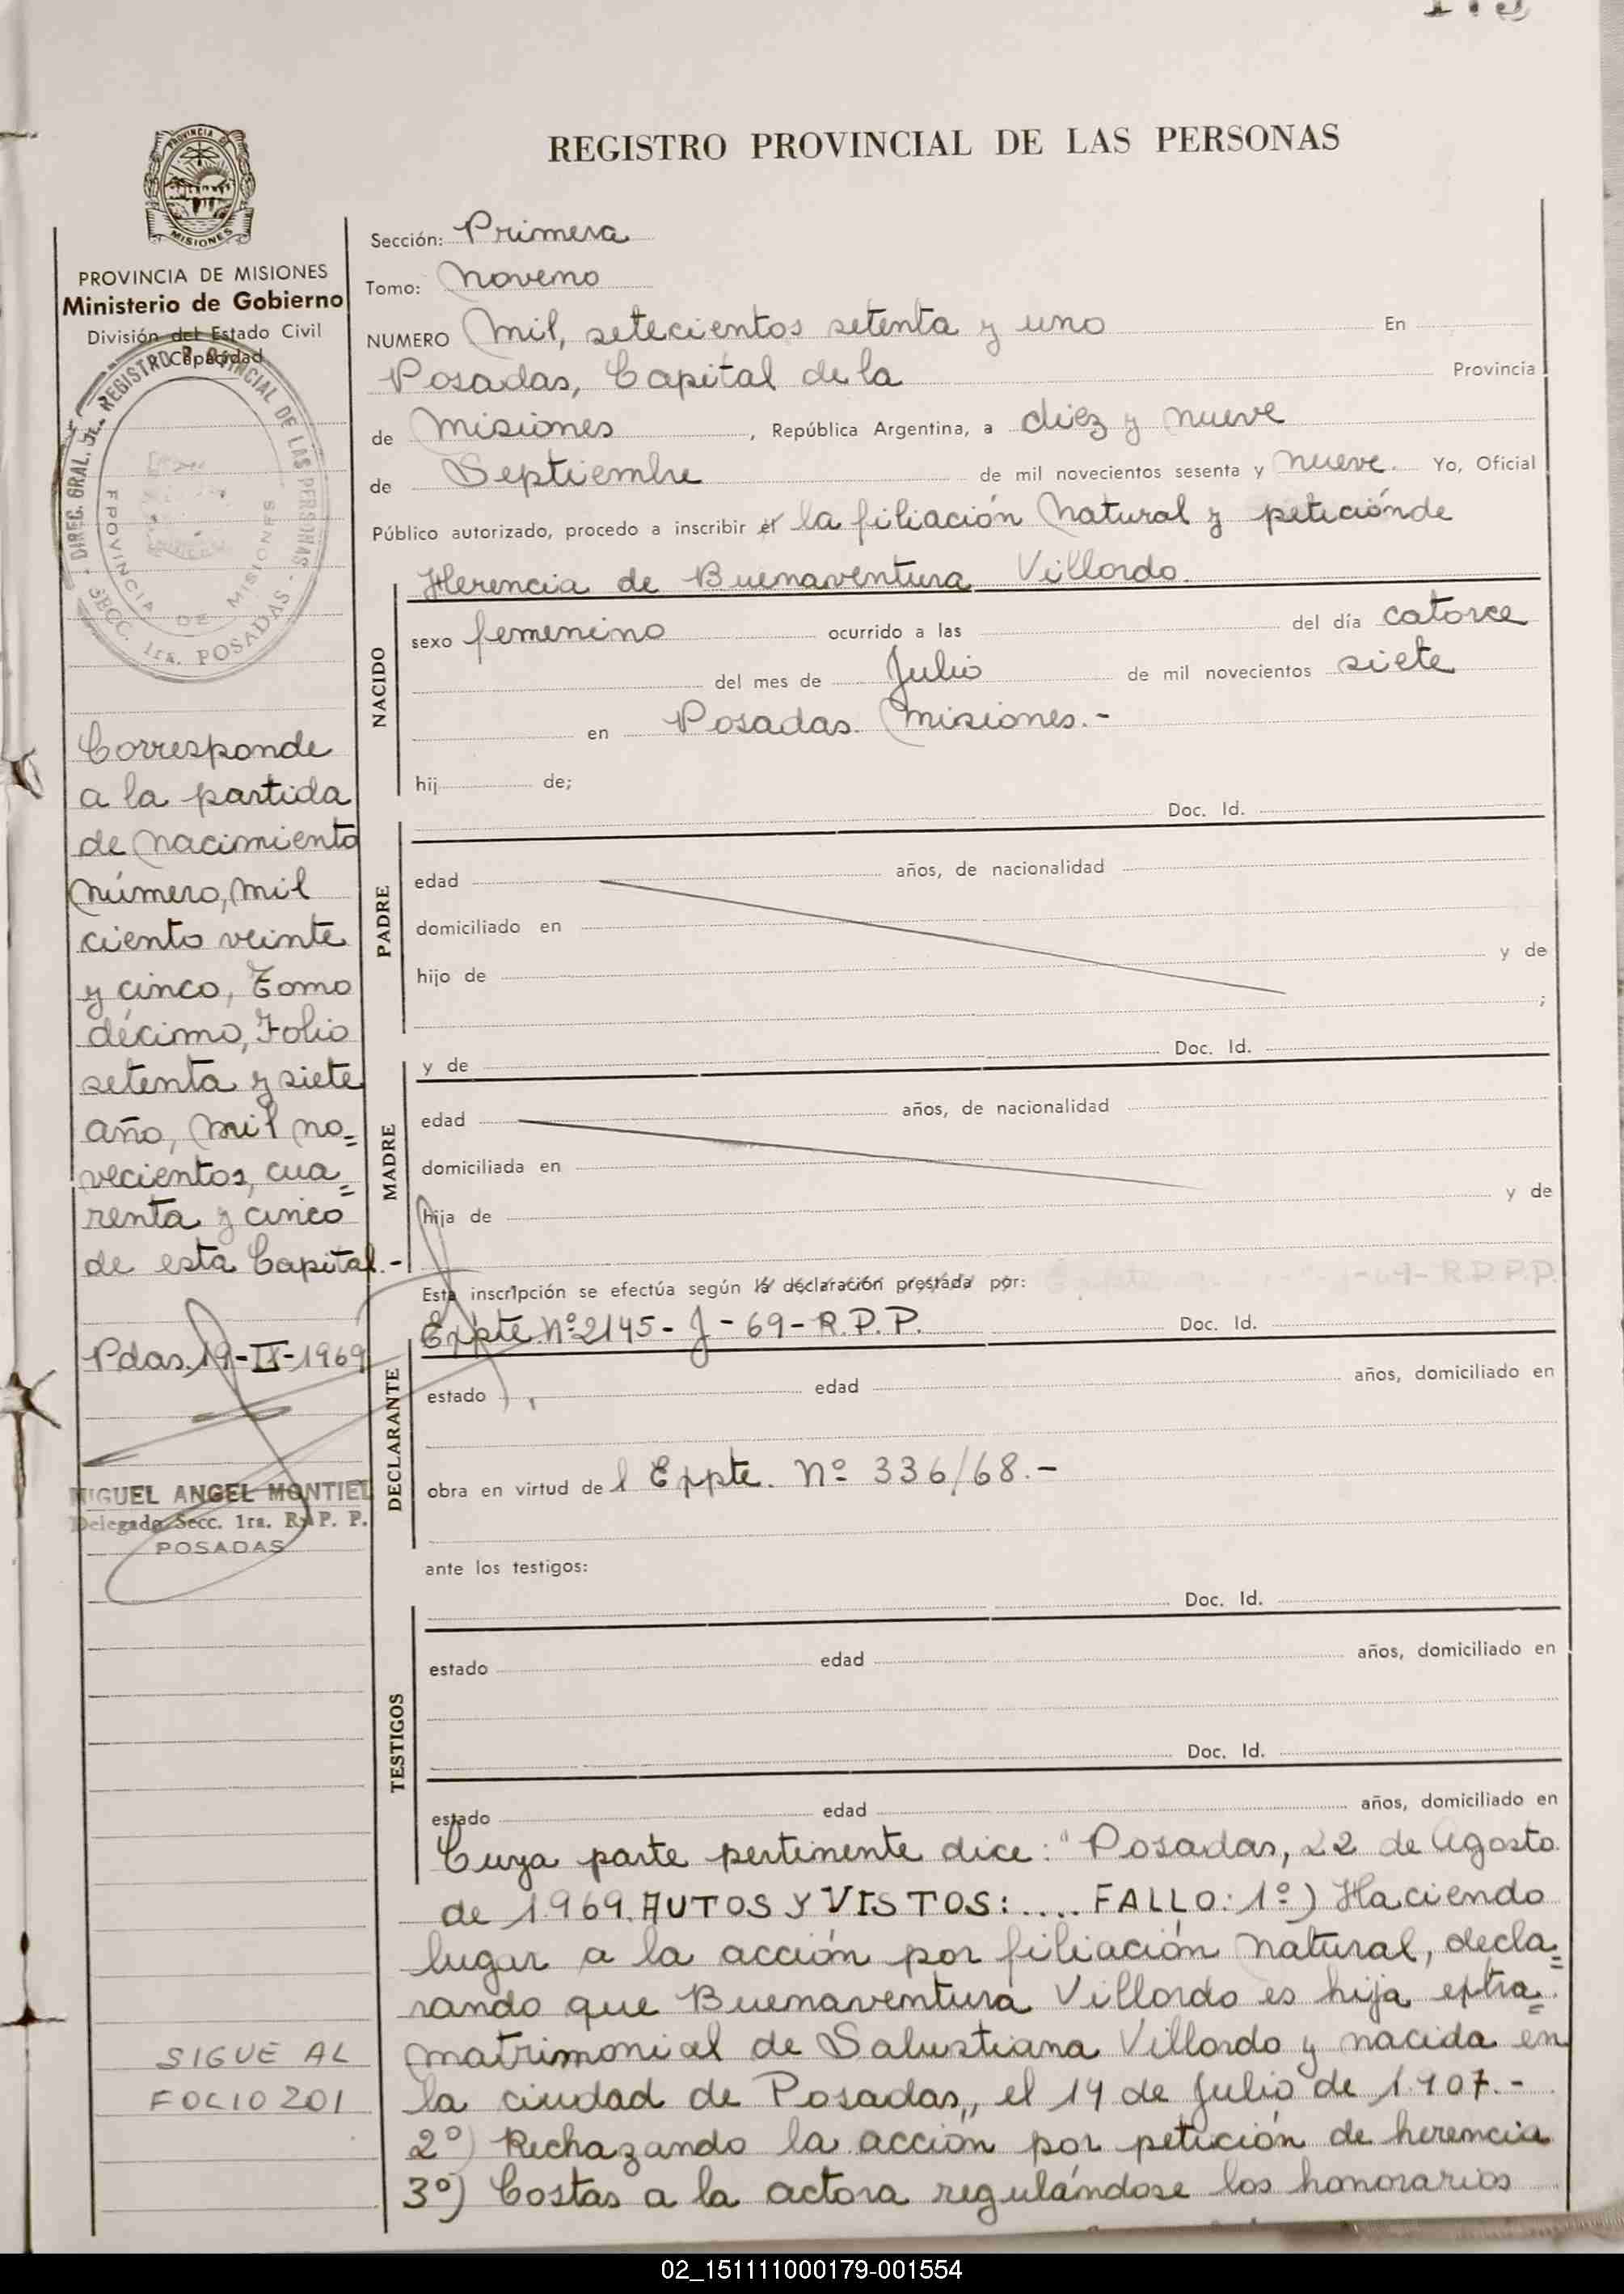 REGISTRO PROVINCIAL DE LAS PERSONAS
PROVINCIA
MISIONES
PROVINCIA DE MISIONES
Ministerio de Gobierno
División del Estado Civil
y Capacidad
DIREC. GRAL. DEL REGISTRO PROVINCIAL DE LAS PERSONAS
PROVINCIA DE MISIONES
SECC. 1ra. POSADAS
Corresponde
a la partida
de nacimiento
número, mil
ciento veinte
y cinco, Tomo
décimo, Folio
setenta y siete
año, mil no=
vecientos, cua=
renta y cinco
de esta Capital.-
Pdas. 19-IX-1969
MIGUEL ANGEL MONTIEL
Delegado Secc. 1ra. R. P. P.
POSADAS
SIGUE AL
FOLIO 201
Sección: Primera
Tomo: Noveno
NUMERO Mil, setecientos setenta y uno En
Posadas, Capital de la Provincia
de Misiones, República Argentina, a diez y nueve
de Septiembre de mil novecientos sesenta y nueve. Yo, Oficial
Público autorizado, procedo a inscribir el la filiación natural y petición de
Herencia de Buenaventura Villordo.
NACIDO
sexo femenino ocurrido a las del día catorce
del mes de Julio de mil novecientos siete
en Posadas. Misiones.-
hij de;
Doc. Id.
PADRE
edad años, de nacionalidad
domiciliado en
hijo de y de
;
y de Doc. Id.
MADRE
edad años, de nacionalidad
domiciliada en
hija de y de
Esta inscripción se efectúa según la declaración prestada por:
Expte. Nº 2145- J - 69 - R.P.P. Doc. Id.
DECLARANTE
estado edad años, domiciliado en
obra en virtud del Expte. Nº 336/68.-
ante los testigos:
Doc. Id.
TESTIGOS
estado edad años, domiciliado en
Doc. Id.
estado edad años, domiciliado en
Cuya parte pertinente dice: "Posadas, 22 de Agosto
de 1.969. AUTOS Y VISTOS: .... FALLO: 1º) Haciendo
lugar a la acción por filiación natural, decla=
rando que Buenaventura Villordo es hija extra=
matrimonial de Salustiana Villordo y nacida en
la ciudad de Posadas, el 14 de Julio de 1.907.-
2º) Rechazando la acción por petición de herencia
3º) Costas a la actora regulándose los honorarios
02_151111000179-001554